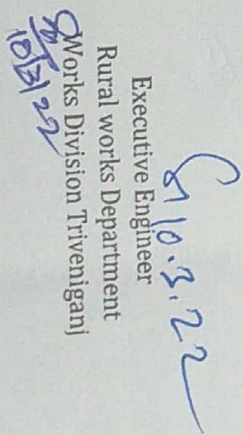 10.3.22
Executive Engineer
Rural works Department
Works Division Triveniganj
10/3/22